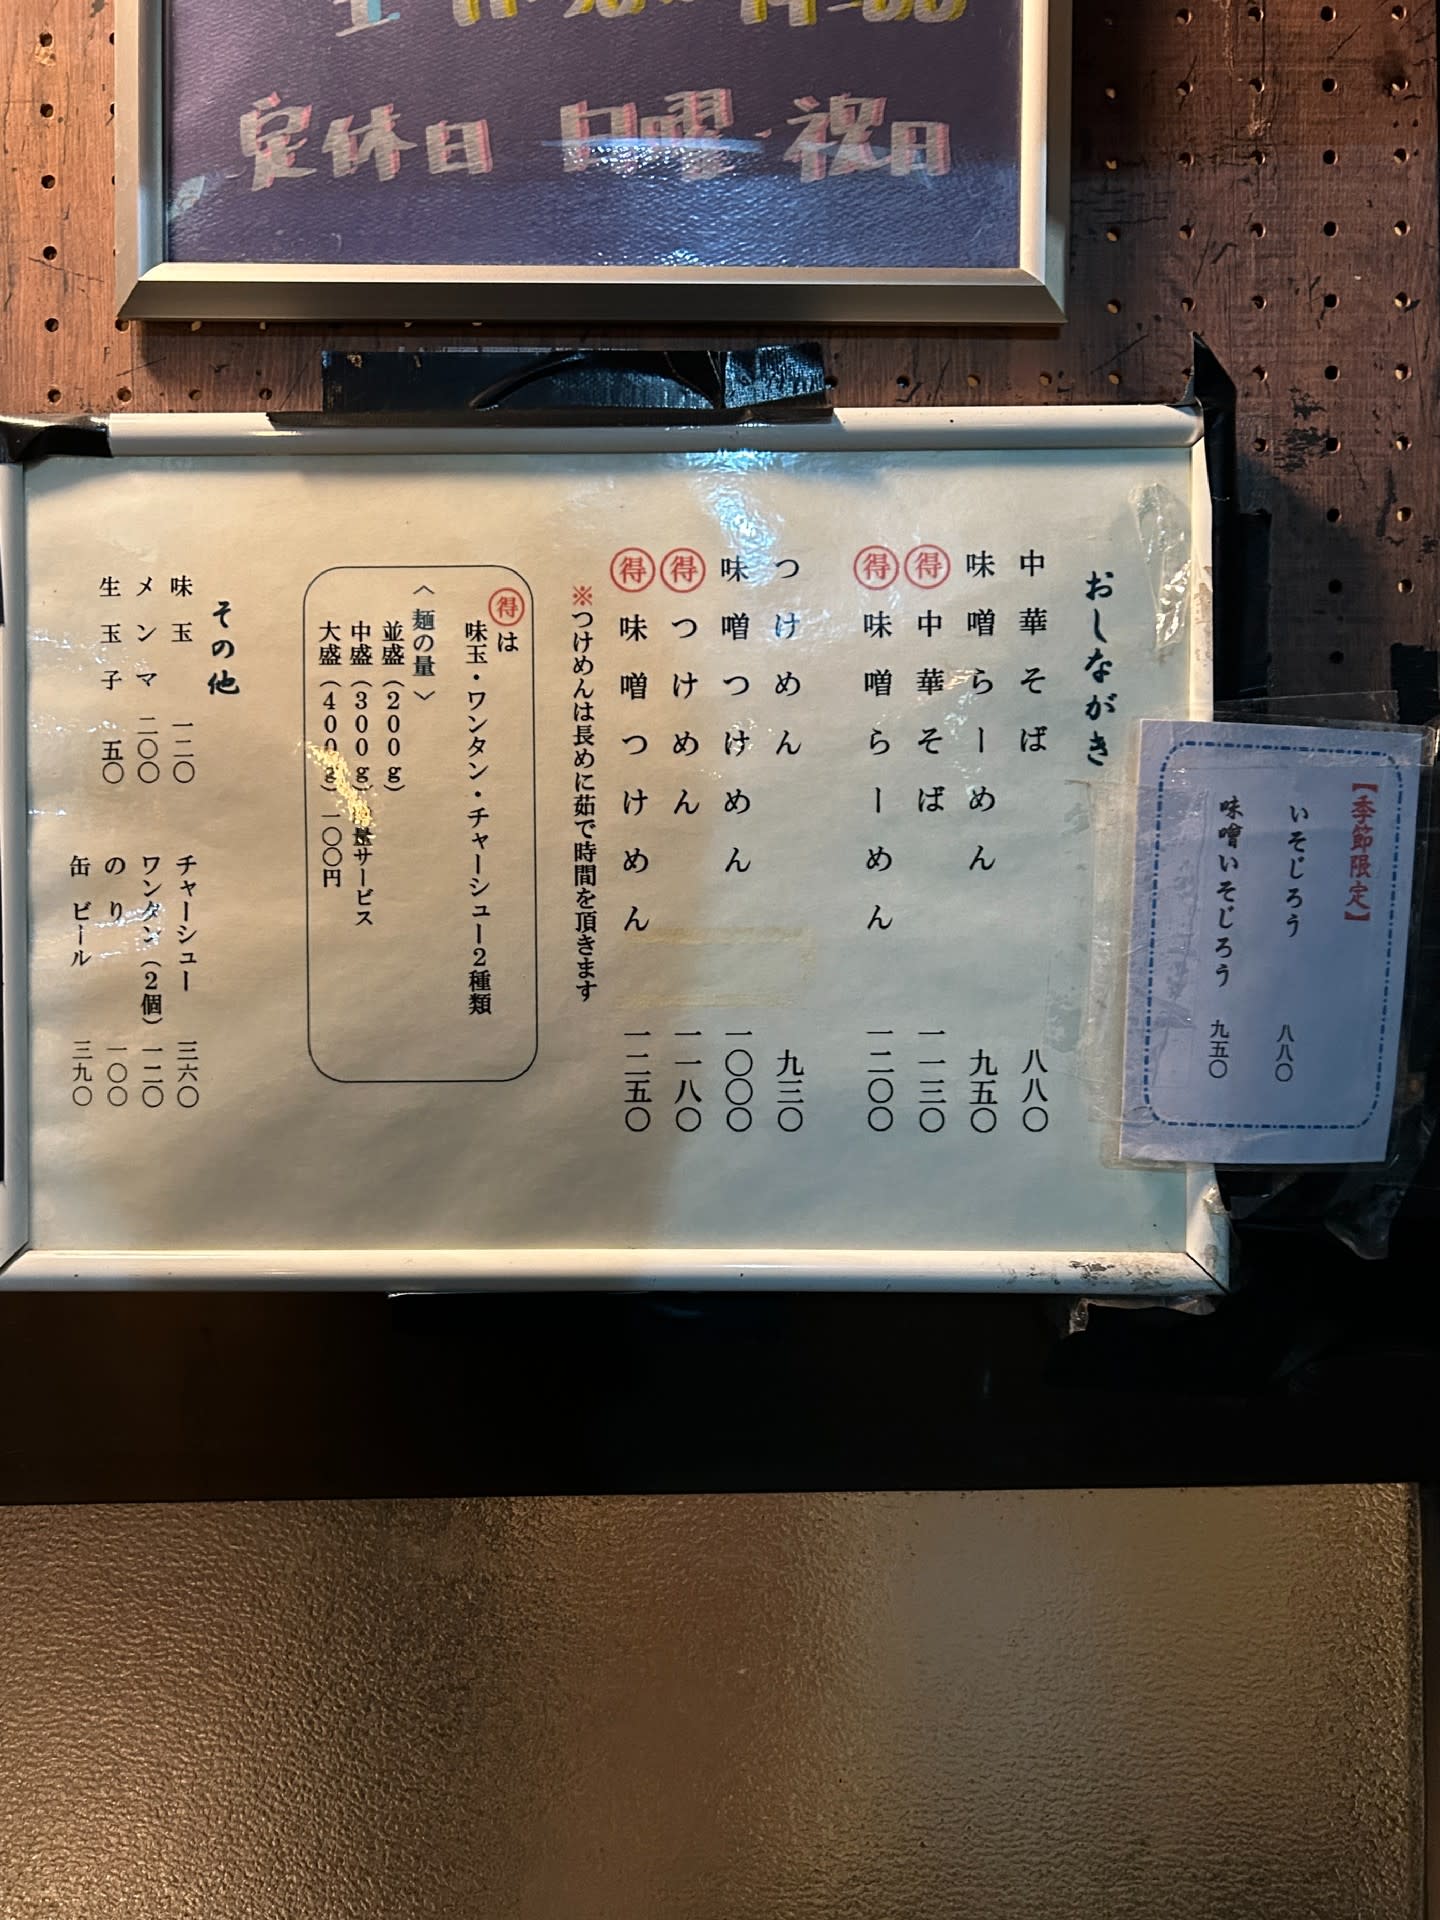 定休日 日曜・祝日
おしながき
中華そば 八八〇
味噌らーめん 九五〇
得 中華そば 一一三〇
得 味噌らーめん 一二〇〇
つけめん 九三〇
味噌つけめん 一〇〇〇
得 つけめん 一一八〇
得 味噌つけめん 一二五〇
※つけめんは長めに茹で時間を頂きます
得は
味玉・ワンタン・チャーシュー2種類
〈麺の量〉
並盛(200g)
中盛(300g) サービス
大盛(400g)一〇〇円
その他
味玉 一二〇
メンマ 二〇〇
生玉子 五〇
チャーシュー 三六〇
ワンタン(2個) 一二〇
のり 一〇〇
缶ビール 三九〇
【季節限定】
いそじろう 八八〇
味噌いそじろう 九五〇